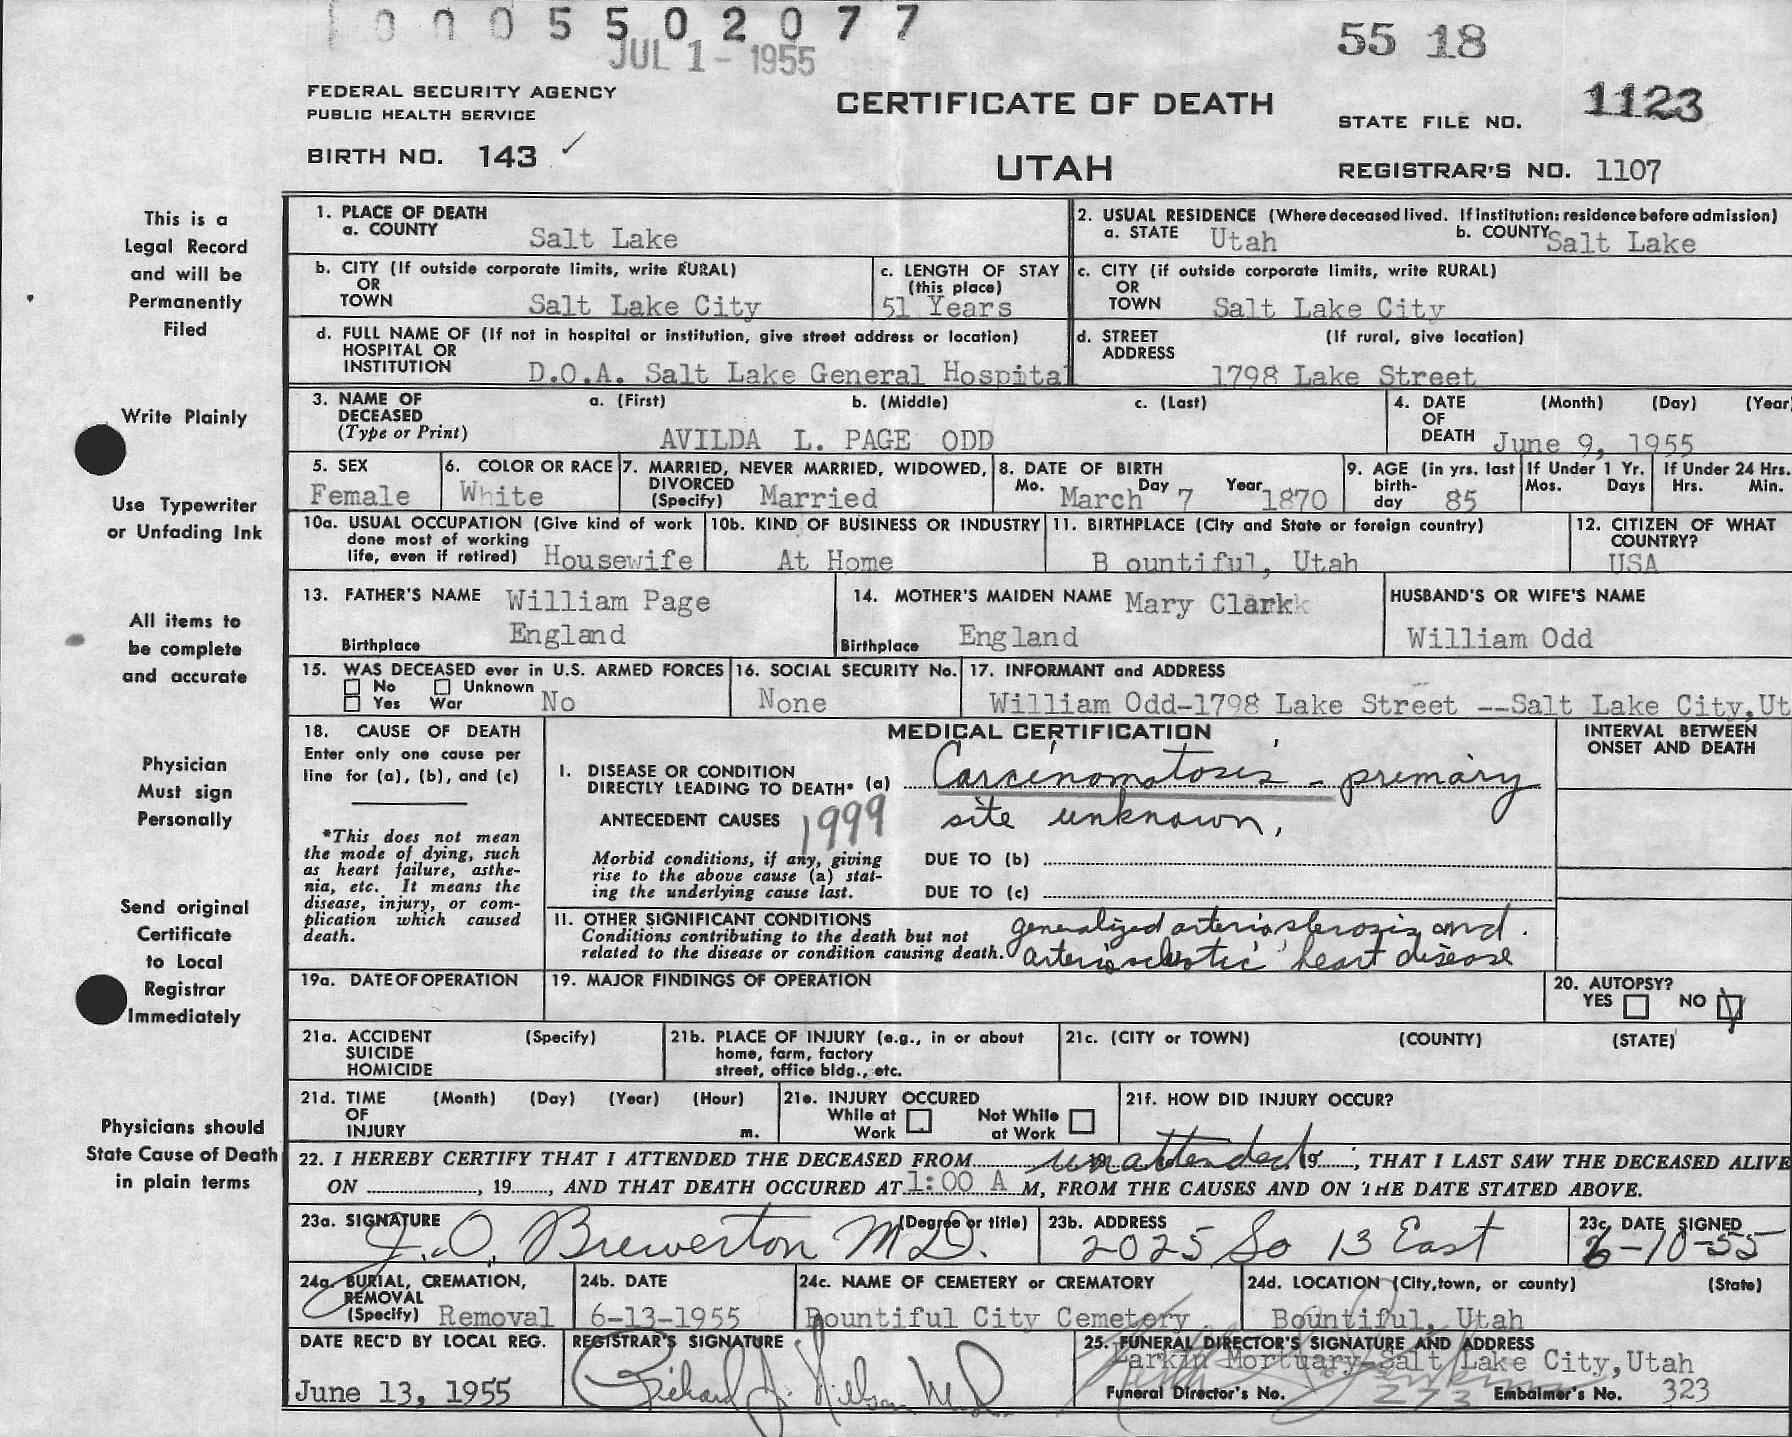 0 0 0 5 5 0 2 0 7 7
JUL 1 - 1955
55 18
FEDERAL SECURITY AGENCY
PUBLIC HEALTH SERVICE
CERTIFICATE OF DEATH
STATE FILE NO. 1123
BIRTH NO. 143 ✓
UTAH
REGISTRAR'S NO. 1107
This is a
Legal Record
and will be
Permanently
Filed
Write Plainly
Use Typewriter
or Unfading Ink
All items to
be complete
and accurate
Physician
Must sign
Personally
Send original
Certificate
to Local
Registrar
Immediately
Physicians should
State Cause of Death
in plain terms
1. PLACE OF DEATH
a. COUNTY Salt Lake
2. USUAL RESIDENCE (Where deceased lived. If institution: residence before admission)
a. STATE Utah b. COUNTY Salt Lake
b. CITY (If outside corporate limits, write RURAL)
OR
TOWN Salt Lake City
c. LENGTH OF STAY
(this place)
51 Years
c. CITY (if outside corporate limits, write RURAL)
OR
TOWN Salt Lake City
d. FULL NAME OF (If not in hospital or institution, give street address or location)
HOSPITAL OR
INSTITUTION D.O.A. Salt Lake General Hospital
d. STREET (If rural, give location)
ADDRESS
1798 Lake Street
3. NAME OF a. (First) b. (Middle) c. (Last)
DECEASED
(Type or Print) AVILDA L. PAGE ODD
4. DATE (Month) (Day) (Year
OF
DEATH June 9, 1955
5. SEX
Female
6. COLOR OR RACE
White
7. MARRIED, NEVER MARRIED, WIDOWED,
DIVORCED
(Specify) Married
8. DATE OF BIRTH
Mo. Day Year
March 7 1870
9. AGE (in yrs. last
birth-
day 85
If Under 1 Yr.
Mos. Days
If Under 24 Hrs.
Hrs. Min.
10a. USUAL OCCUPATION (Give kind of work
done most of working
life, even if retired) Housewife
10b. KIND OF BUSINESS OR INDUSTRY
At Home
11. BIRTHPLACE (City and State or foreign country)
B ountiful, Utah
12. CITIZEN OF WHAT
COUNTRY?
USA
13. FATHER'S NAME William Page
Birthplace England
14. MOTHER'S MAIDEN NAME Mary Clark
Birthplace England
HUSBAND'S OR WIFE'S NAME
William Odd
15. WAS DECEASED ever in U.S. ARMED FORCES
No Unknown
Yes War No
16. SOCIAL SECURITY No.
None
17. INFORMANT and ADDRESS
William Odd-1798 Lake Street --Salt Lake City,Ut
18. CAUSE OF DEATH
Enter only one cause per
line for (a), (b), and (c)
*This does not mean
the mode of dying, such
as heart failure, asthe-
nia, etc. It means the
disease, injury, or com-
plication which caused
death.
MEDICAL CERTIFICATION
INTERVAL BETWEEN
ONSET AND DEATH
I. DISEASE OR CONDITION
DIRECTLY LEADING TO DEATH* (a) Carcinomatosis - primary
ANTECEDENT CAUSES 1999 site unknown,
Morbid conditions, if any, giving
rise to the above cause (a) stat-
ing the underlying cause last.
DUE TO (b)
DUE TO (c)
II. OTHER SIGNIFICANT CONDITIONS
Conditions contributing to the death but not
related to the disease or condition causing death.
generalized arteriosclerosis and
arteriosclerotic heart disease
19a. DATE OF OPERATION
19. MAJOR FINDINGS OF OPERATION
20. AUTOPSY?
YES NO
21a. ACCIDENT (Specify)
SUICIDE
HOMICIDE
21b. PLACE OF INJURY (e.g., in or about
home, farm, factory
street, office bldg., etc.
21c. (CITY or TOWN) (COUNTY) (STATE)
21d. TIME (Month) (Day) (Year) (Hour)
OF
INJURY m.
21e. INJURY OCCURED
While at Not While
Work at Work
21f. HOW DID INJURY OCCUR?
22. I HEREBY CERTIFY THAT I ATTENDED THE DECEASED FROM unattended 19, THAT I LAST SAW THE DECEASED ALIVE
ON , 19, AND THAT DEATH OCCURED AT 1:00 A M, FROM THE CAUSES AND ON THE DATE STATED ABOVE.
23a. SIGNATURE (Degree or title)
J. O. Brewerton MD.
23b. ADDRESS
2025 So 13 East
23c. DATE SIGNED
6-10-55
24a. BURIAL, CREMATION,
REMOVAL
(Specify) Removal
24b. DATE
6-13-1955
24c. NAME OF CEMETERY or CREMATORY
Bountiful City Cemetery
24d. LOCATION (City,town, or county) (State)
Bountiful, Utah
DATE REC'D BY LOCAL REG.
June 13, 1955
REGISTRAR'S SIGNATURE
Richard J. Nilson M.D.
25. FUNERAL DIRECTOR'S SIGNATURE AND ADDRESS
Larkin Mortuary-Salt Lake City,Utah
Funeral Director's No. 273 Embalmer's No. 323